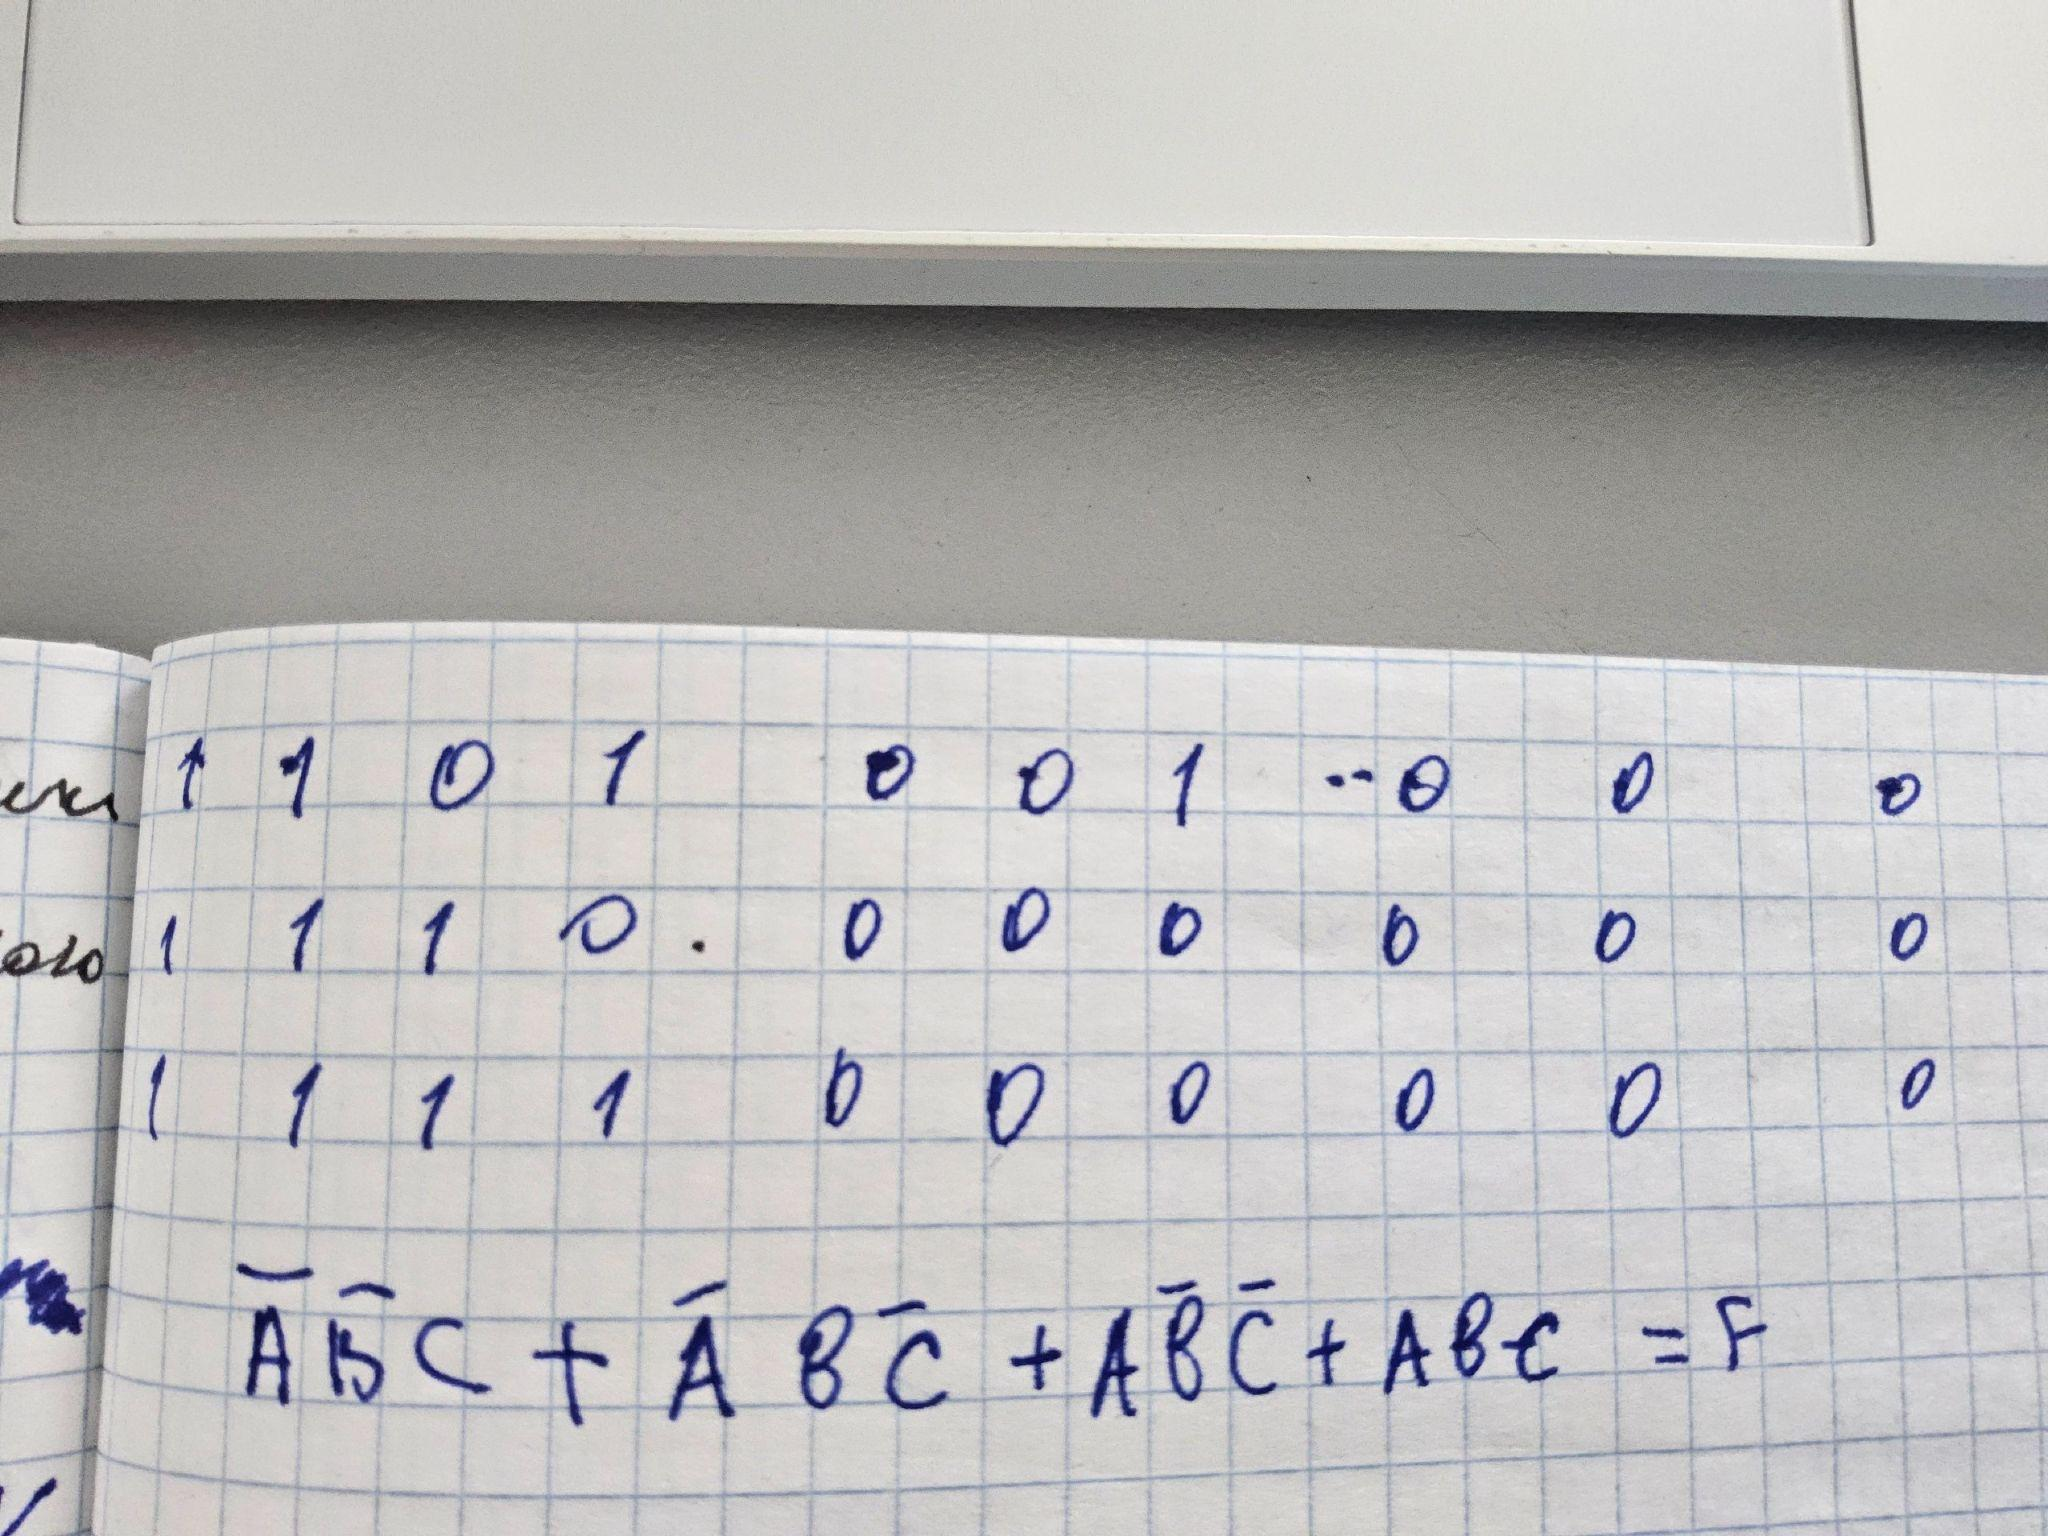 1 1 0 1 0 0 1 0 0 0
1 1 1 0 . 0 0 0 0 0 0
1 1 1 1 0 0 0 0 0 0
A̅ B̅ C + A̅ B C̅ + A B̅ C̅ + A B C = F